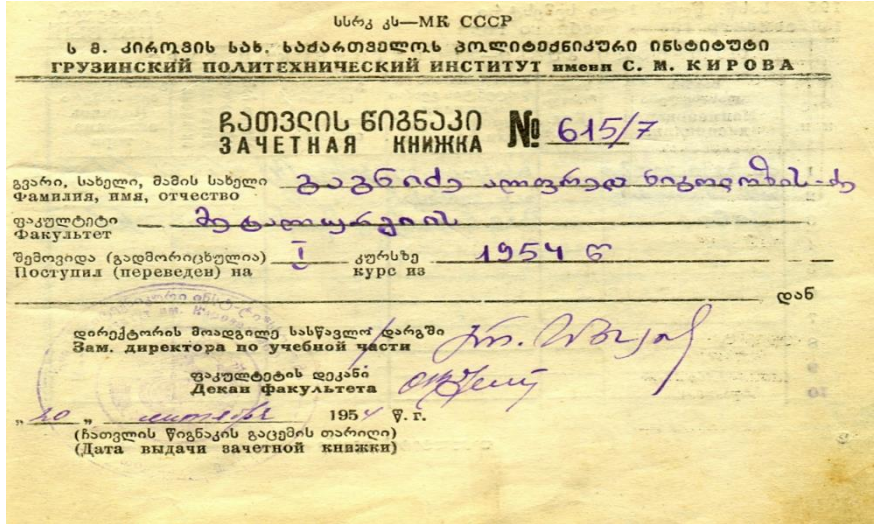 სსრკ კს—МК СССР
ს მ. კიროვის სახ. საქართველოს პოლიტექნიკური ინსტიტუტი
ГРУЗИНСКИЙ ПОЛИТЕХНИЧЕСКИЙ ИНСТИТУТ имени С. М. КИРОВА
ჩათვლის წიგნაკი № 615/7
ЗАЧЕТНАЯ КНИЖКА
გვარი, სახელი, მამის სახელი გაგნიძე ალფრედ
Фамилия, имя, отчество
ფაკულტეტი მეტალურგიის
Факультет
შემოვიდა (გადმორიცხულია) I კურსზე 1954 წ
Поступил (переведен) на курс из
დან
დირექტორის მოადგილე სასწავლო დარგში
Зам. директора по учебной части
ფაკულტეტის დეკანი
Декан факультета
„20„ 1954 წ. г.
(ჩათვლის წიგნაკის გაცემის თარიღი)
(Дата выдачи зачетной книжки)